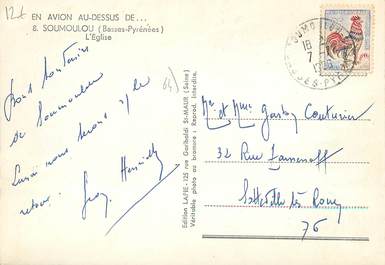 12t
EN AVION AU-DESSUS DE...
8. SOUMOULOU (Basses-Pyrénées)
L'Eglise
SOUMOULOU
18
7
BASSES-PYR
Bons souvenirs
de Soumoulou
nous serons
retour.
64
Edition LAPIE-125 rue Garibaldi St-MAUR (Seine)
Véritable photo au bromure : Reprod. interdite.
Mr et Mme Couturier
32 Rue
Sotteville lès Rouen
76